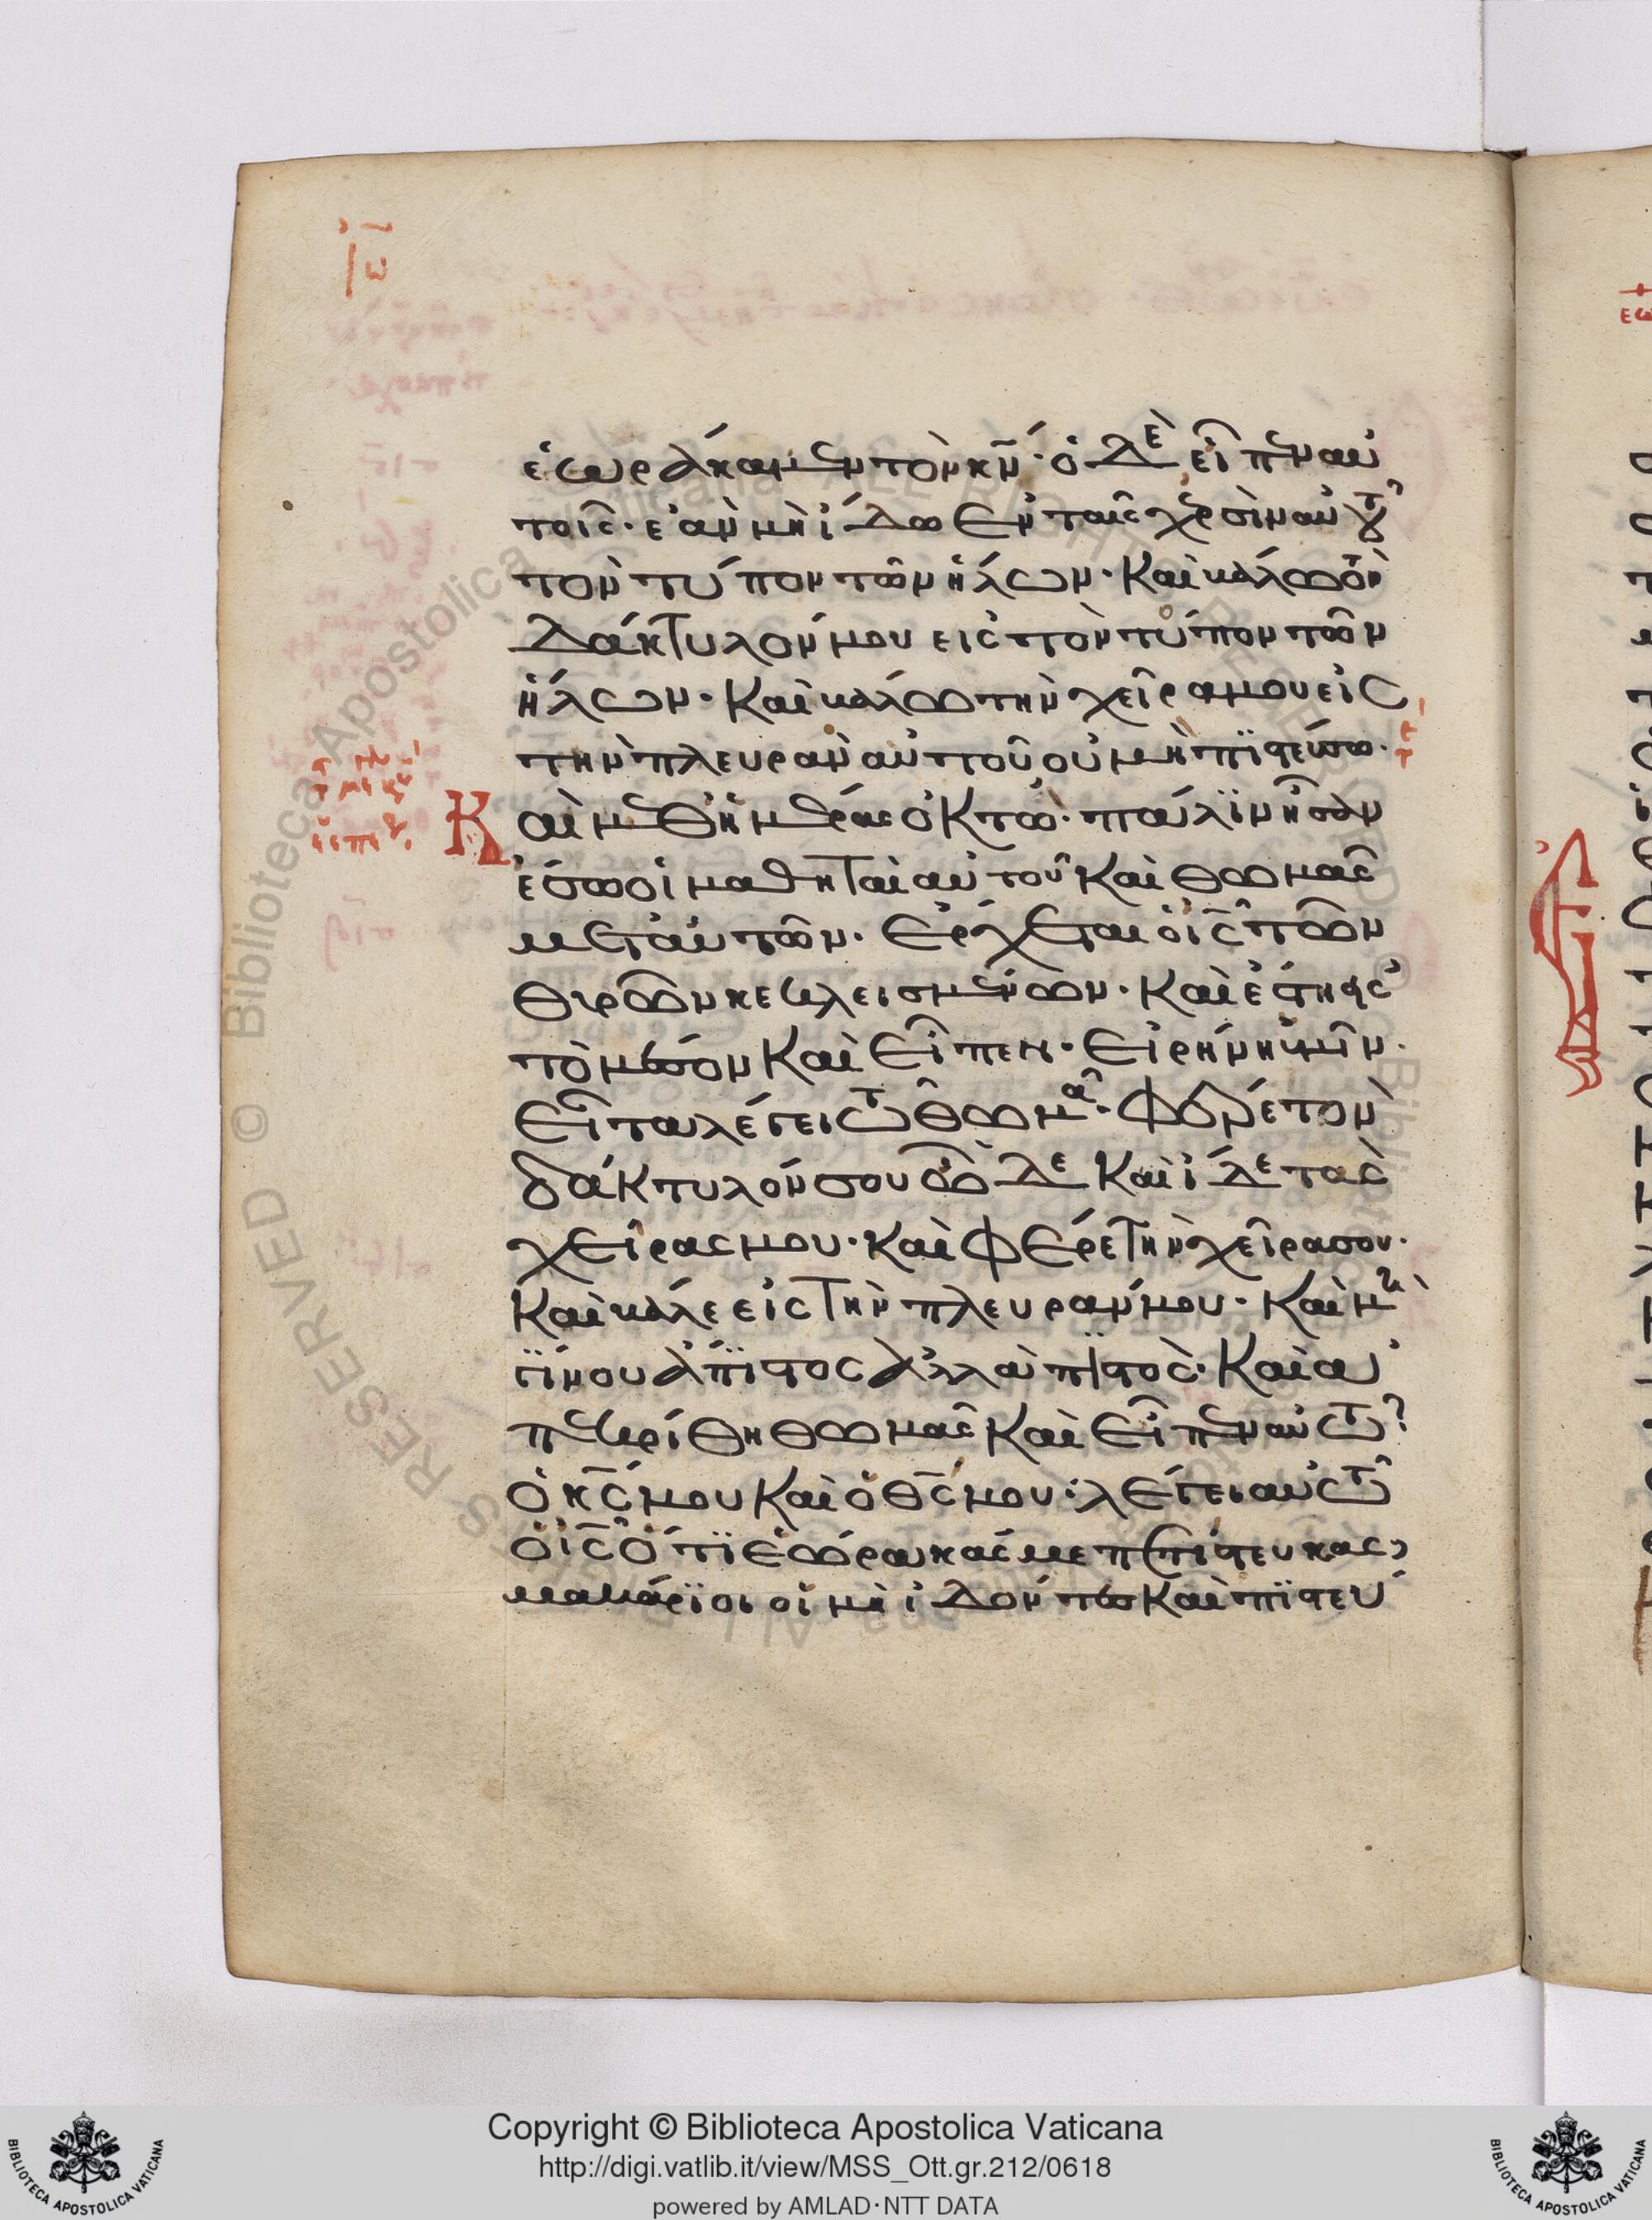 ἑωράκαμεν τὸν κν̄· ὁ δὲ εἶπεν αὐ
τοῖς· ἐὰν μὴ ἴδω ἐν ταῖς χερσὶν αὐτοῦ
τὸν τύπον τῶν ἥλων· καὶ βάλω τὸν
δάκτυλόν μου εἰς τὸν τύπον τῶν
ἥλων· καὶ βάλω τὴν χεῖρα μου εἰς
τὴν πλευρὰν αὐτοῦ οὐ μὴ πϊστεύσω·
Καὶ μεθ' ἡμέρας ὀκτὼ· πάλϊν ἦσαν
ἔσω οἱ μαθηταὶ αὐτοῦ καὶ θωμᾶς
μετ' αὐτῶν· ἔρχεται ὁ ις̄ τῶν
θυρῶν κεκλεισμένων· καὶ ἔστη εἰς
τὸ μέσον καὶ εἶπεν· εἰρήνη ὑμῖν·
εἶτα λέγει τῶ θωμᾶ· φέρε τὸν
δάκτυλόν σου ὧδε καὶ ἴδε τὰς
χεῖρας μου· καὶ φέρε τὴν χεῖρα σου·
καὶ βάλε εἰς τὴν πλευράν μου· καὶ μὴ
γίνου ἄπϊστος ἀλλὰ πιστός· καὶ ἀ
πεκρίθη θωμᾶς καὶ εἶπεν αὐτῶ
ὁ κς̄ μου καὶ ὁ θς̄ μου· λέγει αὐτῶ
ὁ ις̄ ὅτϊ ἑώρακάς με πεπίστευκας,
μακάρϊοι οἱ μὴ ἰδόντες καὶ πϊστεύ
Copyright © Biblioteca Apostolica Vaticana
http://digi.vatlib.it/view/MSS_Ott.gr.212/0618
powered by AMLAD·NTT DATA